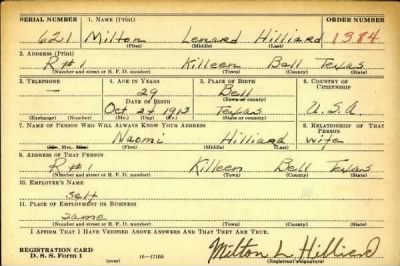 SERIAL NUMBER 1. NAME (Print) ORDER NUMBER
621 Milton Lenard Hilliard 1384
(First) (Middle) (Last)
2. ADDRESS (Print)
R#1 Killeen Bell Texas
(Number and street or R. F. D. number) (Town) (County) (State)
3. TELEPHONE 4. AGE IN YEARS 5. PLACE OF BIRTH 6. COUNTRY OF CITIZENSHIP
29 Bell
DATE OF BIRTH (Town or county)
Oct 24 1913 Texas U.S.A.
(Exchange) (Number) (Mo.) (Day) (Yr.) (State or country)
7. NAME OF PERSON WHO WILL ALWAYS KNOW YOUR ADDRESS 8. RELATIONSHIP OF THAT PERSON
Naomi Hilliard wife
(Mr., Mrs., Miss) (First) (Middle) (Last)
9. ADDRESS OF THAT PERSON
R#1 Killeen Bell Texas
(Number and street or R. F. D. number) (Town) (County) (State)
10. EMPLOYER'S NAME
self
11. PLACE OF EMPLOYMENT OR BUSINESS
same
(Number and street or R. F. D. number) (Town) (County) (State)
I AFFIRM THAT I HAVE VERIFIED ABOVE ANSWERS AND THAT THEY ARE TRUE.
REGISTRATION CARD
D. S. S. Form 1 (over) 16—17105 Milton L Hilliard
(Registrant's signature)